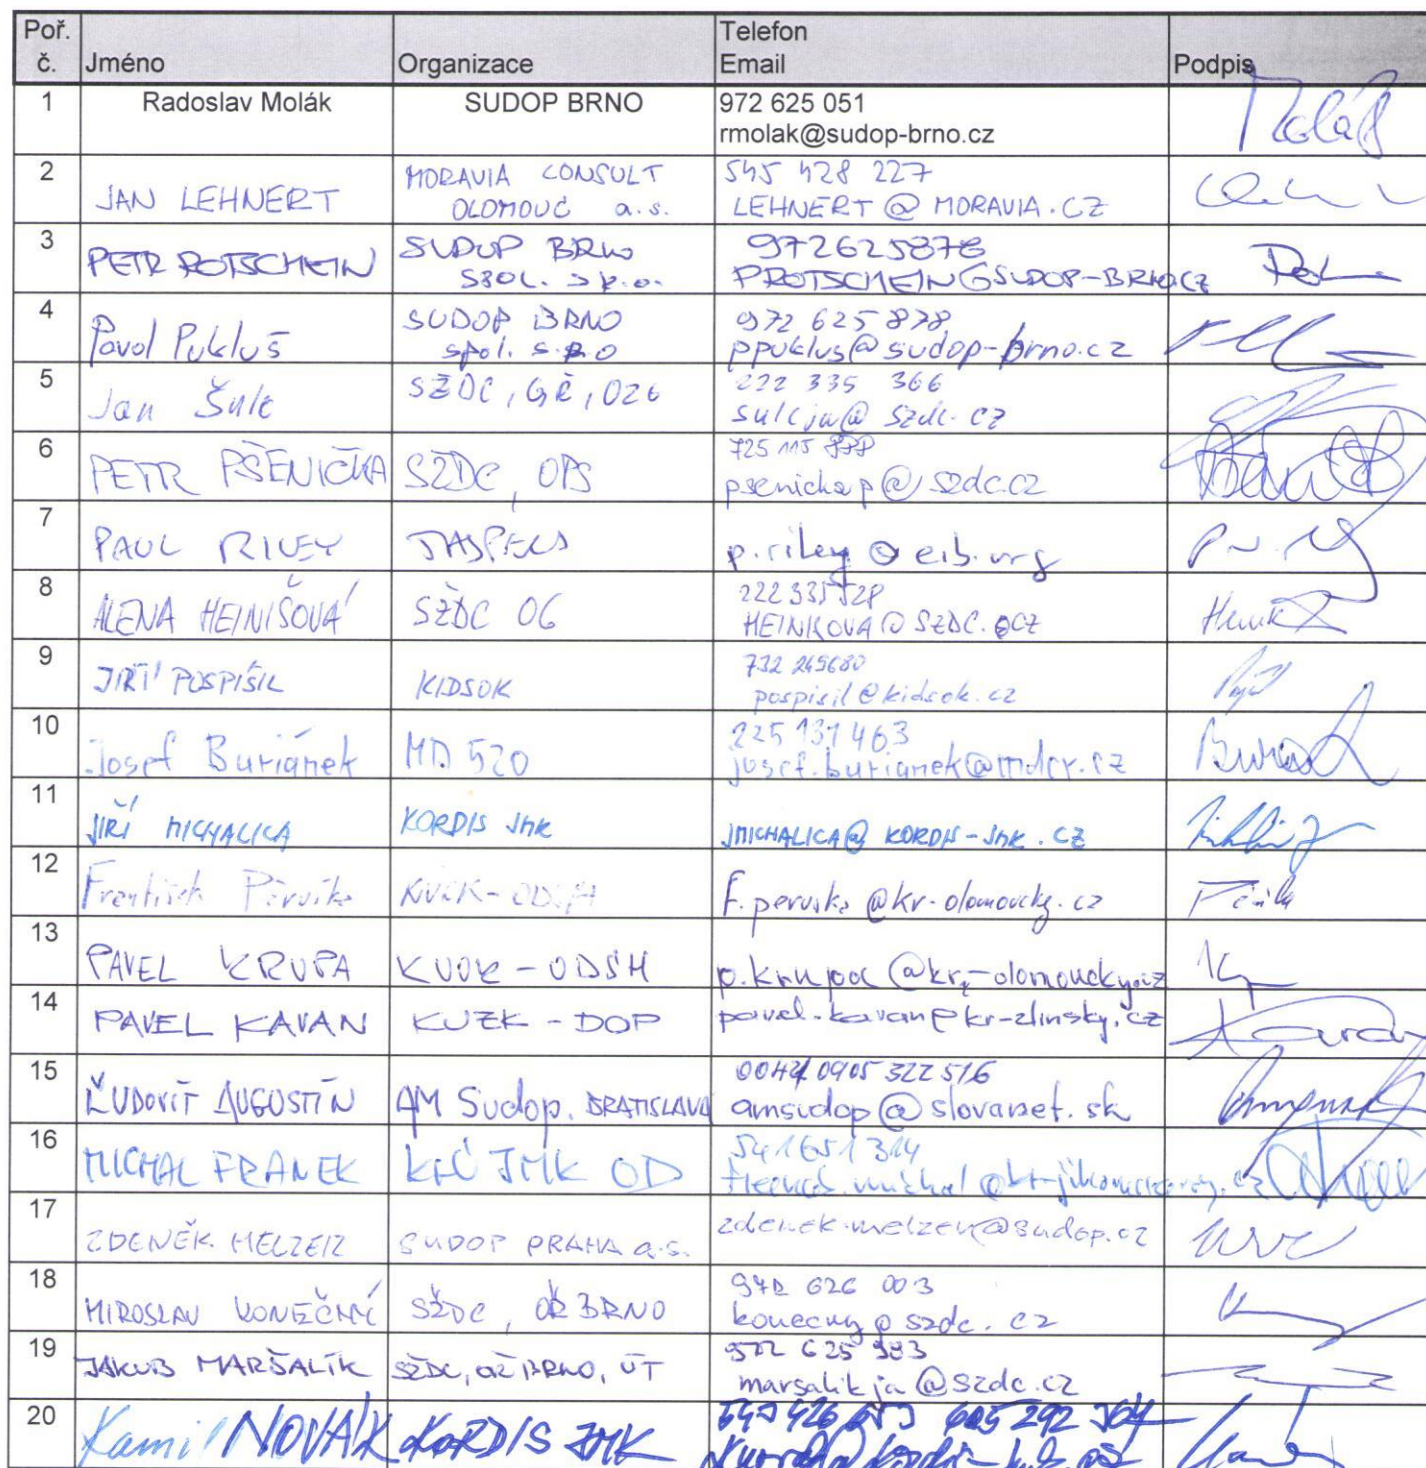 Poř. č. Jméno Organizace Telefon Email Podpis
1 Radoslav Molák SUDOP BRNO 972 625 051
rmolak@sudop-brno.cz
2 JAN LEHNERT MORAVIA CONSULT OLOMOUC a.s. 545 428 227
LEHNERT@MORAVIA.CZ
3 PETR ROTSCHEIN SUDOP BRNO spol. s r.o. 972625878
PROTSCHEIN@SUDOP-BRNO.CZ
4 Pavol Pukluš SUDOP BRNO spol. s.r.o 972 625 878
ppuklus@sudop-brno.cz
5 Jan Šulc SŽDC, GŘ, O26 222 335 366
sulcja@szdc.cz
6 PETR PŠENIČKA SŽDC, OPS 725 115
psenickap@szdc.cz
7 PAUL RILEY JASPERS p.riley@eib.org
8 ALENA HEINIŠOVÁ SŽDC O6
HEINISOVA@SZDC.CZ
9 JIŘÍ POSPÍŠIL KIDSOK 732 245680
pospisil@kidsok.cz
10 Josef Buriánek MD 520 225 131 463
josef.burianek@mdcr.cz
11 JIŘÍ MICHALICA KORDIS JMK JMICHALICA@KORDIS-JMK.CZ
12 František Pěruška KÚOK-ODSH f.peruska@kr-olomoucky.cz
13 PAVEL KRUPA KUOK-ODSH p.krupa@kr-olomoucky.cz
14 PAVEL KAVAN KUZK-DOP pavel.kavan@kr-zlinsky.cz
15 ĽUDOVÍT AUGUSTÍN AM Sudop. BRATISLAVA 0905 322 516
amsudop@slovanet.sk
16 MICHAL FRANEK KrÚ JMK OD 541651314
17 ZDENĚK MELZER SUDOP PRAHA a.s. zdenek.melzer@sudop.cz
18 MIROSLAV KONEČNÝ SŽDC, OŘ BRNO 972 626 003
konecny@szdc.cz
19 JAKUB MARŠALÍK SŽDC, OŘ BRNO, ÚT 972 625
marsalikja@szdc.cz
20 Kamil NOVÁK KORDIS JMK